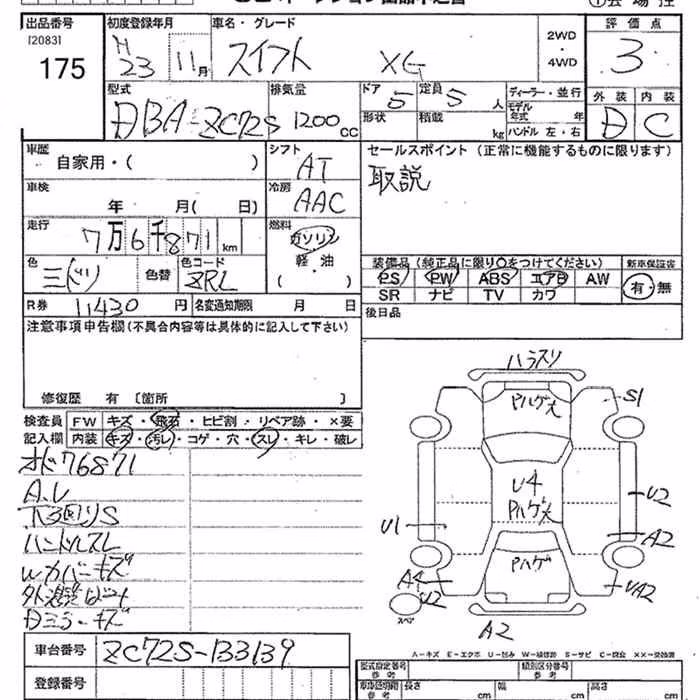 出品番号 初度登録年月 車名・グレード 評価点
[2083] H23 11月 スイフト XG 2WD・4WD 3
175
型式 排気量 ドア 定員 ディーラー・並行 外装 内装
DBA-ZC72S 1200cc 5 5人 モデル年式 年 D C
形状 積載 kg ハンドル 左・右
車歴 シフト セールスポイント(正常に機能するものに限ります)
自家用・( ) AT 取説
車検 冷房
年 月( 日) AAC
走行 燃料
7万6千871km ガソリン
軽・油
( )
色 色替 色コード
ZRL
装備品(純正品に限り○をつけてください) 新車保証書
PS PW ABS エアB AW 有・無
SR ナビ TV カワ
R券 11430円 名変通知期限 月 日
後日品
注意事項申告欄(不具合内容等は具体的に記入して下さい)
修復歴 有 [箇所 ]
検査員 FW キズ・飛石・ヒビ割・リペア跡・×要
記入欄 内装 キズ・汚レ・コゲ・穴・スレ・キレ・破レ
オド76871
下回りS
ハンドルスレ
Wカバーキズ
ドミラーキズ
ハラスリ
Pハゲ大
S1
U4
Pハゲ大
U2
U1
A2
Pハゲ
A4
U2
UA2
スペア
A2
A-キズ E-エクボ U-凹み W-補修跡 S-サビ C-腐食 XX-交換済
車台番号 ZC72S-133139
登録番号
型式指定番号 参考 類別区分番号 参考
車体寸法 参考 長さ cm 幅 cm 高さ cm